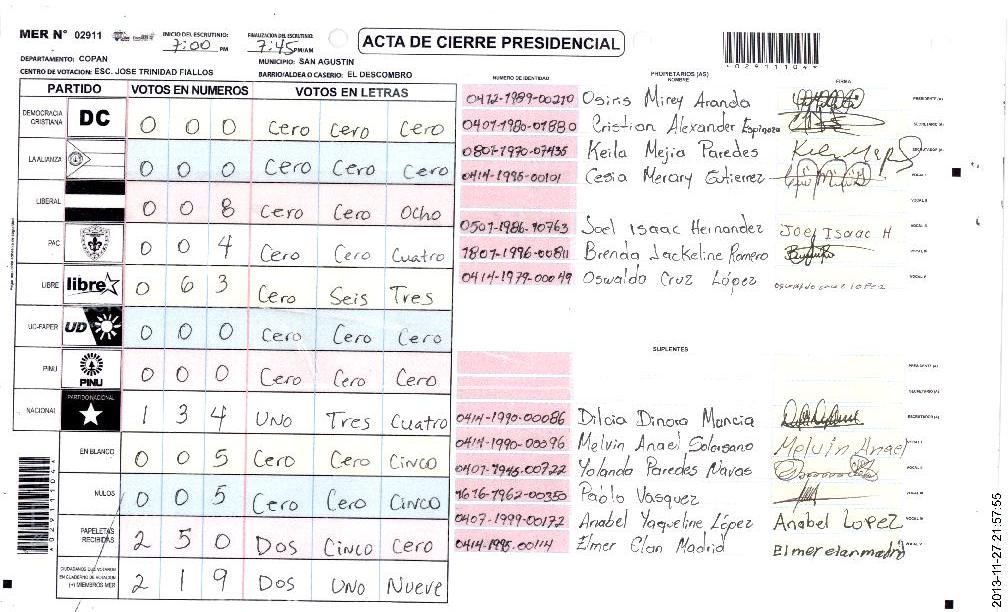 MER N° 02911
INICIO DEL ESCRUTINIO: 7:00 PM
FINALIZACION DEL ESCRUTINIO: 7:45 PM/AM
ACTA DE CIERRE PRESIDENCIAL
*029111044*
DEPARTAMENTO: COPAN
MUNICIPIO: SAN AGUSTIN
CENTRO DE VOTACION: ESC. JOSE TRINIDAD FIALLOS
BARRIO/ALDEA O CASERIO: EL DESCOMBRO
PARTIDO VOTOS EN NUMEROS VOTOS EN LETRAS
DEMOCRACIA CRISTIANA DC 0 0 0 Cero Cero Cero
LA ALIANZA 0 0 0 Cero Cero Cero
LIBERAL 0 0 8 Cero Cero Ocho
PAC 0 0 4 Cero Cero Cuatro
LIBRE libre 0 6 3 Cero Seis Tres
UD-FAPER UD 0 0 0 Cero Cero Cero
PINU PINU 0 0 0 Cero Cero Cero
NACIONAL PARTIDO NACIONAL 1 3 4 UNO Tres Cuatro
EN BLANCO 0 0 5 Cero Cero Cinco
NULOS 0 0 5 Cero Cero Cinco
PAPELETAS RECIBIDAS 2 5 0 Dos Cinco Cero
CIUDADANOS QUE VOTARON EN CUADERNO DE VOTACION (+) MIEMBROS MER 2 1 9 Dos Uno Nueve
NUMERO DE IDENTIDAD PROPIETARIOS (AS) NOMBRE FIRMA
0412-1989-00210 Osiris Mirey Aranda PRESIDENTE (A)
0401-1980-01880 Cristian Alexander Espinoza SECRETARIO (A)
0801-1970-07435 Keila Mejia Paredes ESCRUTADOR (A)
0414-1995-00101 Cesia Merary Gutierrez VOCAL I
VOCAL II
0501-1986-10763 Joel Isaac Hernandez Joel Isaac H
1807-1996-00811 Brenda Jackeline Romero
0414-1979-00049 Oswaldo Cruz López oswaldo cruz lopez
SUPLENTES
PRESIDENTE (A)
SECRETARIO (A)
0414-1990-00086 Dilcia Dinora Mancia ESCRUTADOR (A)
0414-1990-00096 Melvin Anael Solorsano Melvin Anael
0407-1945-00722 Yolanda Paredes Navas
1616-1962-00350 Pablo Vasquez
0407-1999-00172 Anabel Yaqueline López Anabel Lopez
0414-1995-00114 Elmer Elan Madrid Elmer elan madrid
2013-11-27 21:57:55